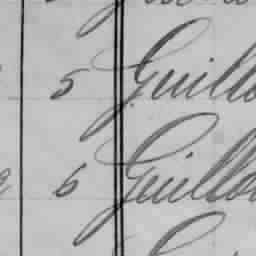 5 Guillo
6 Guillo